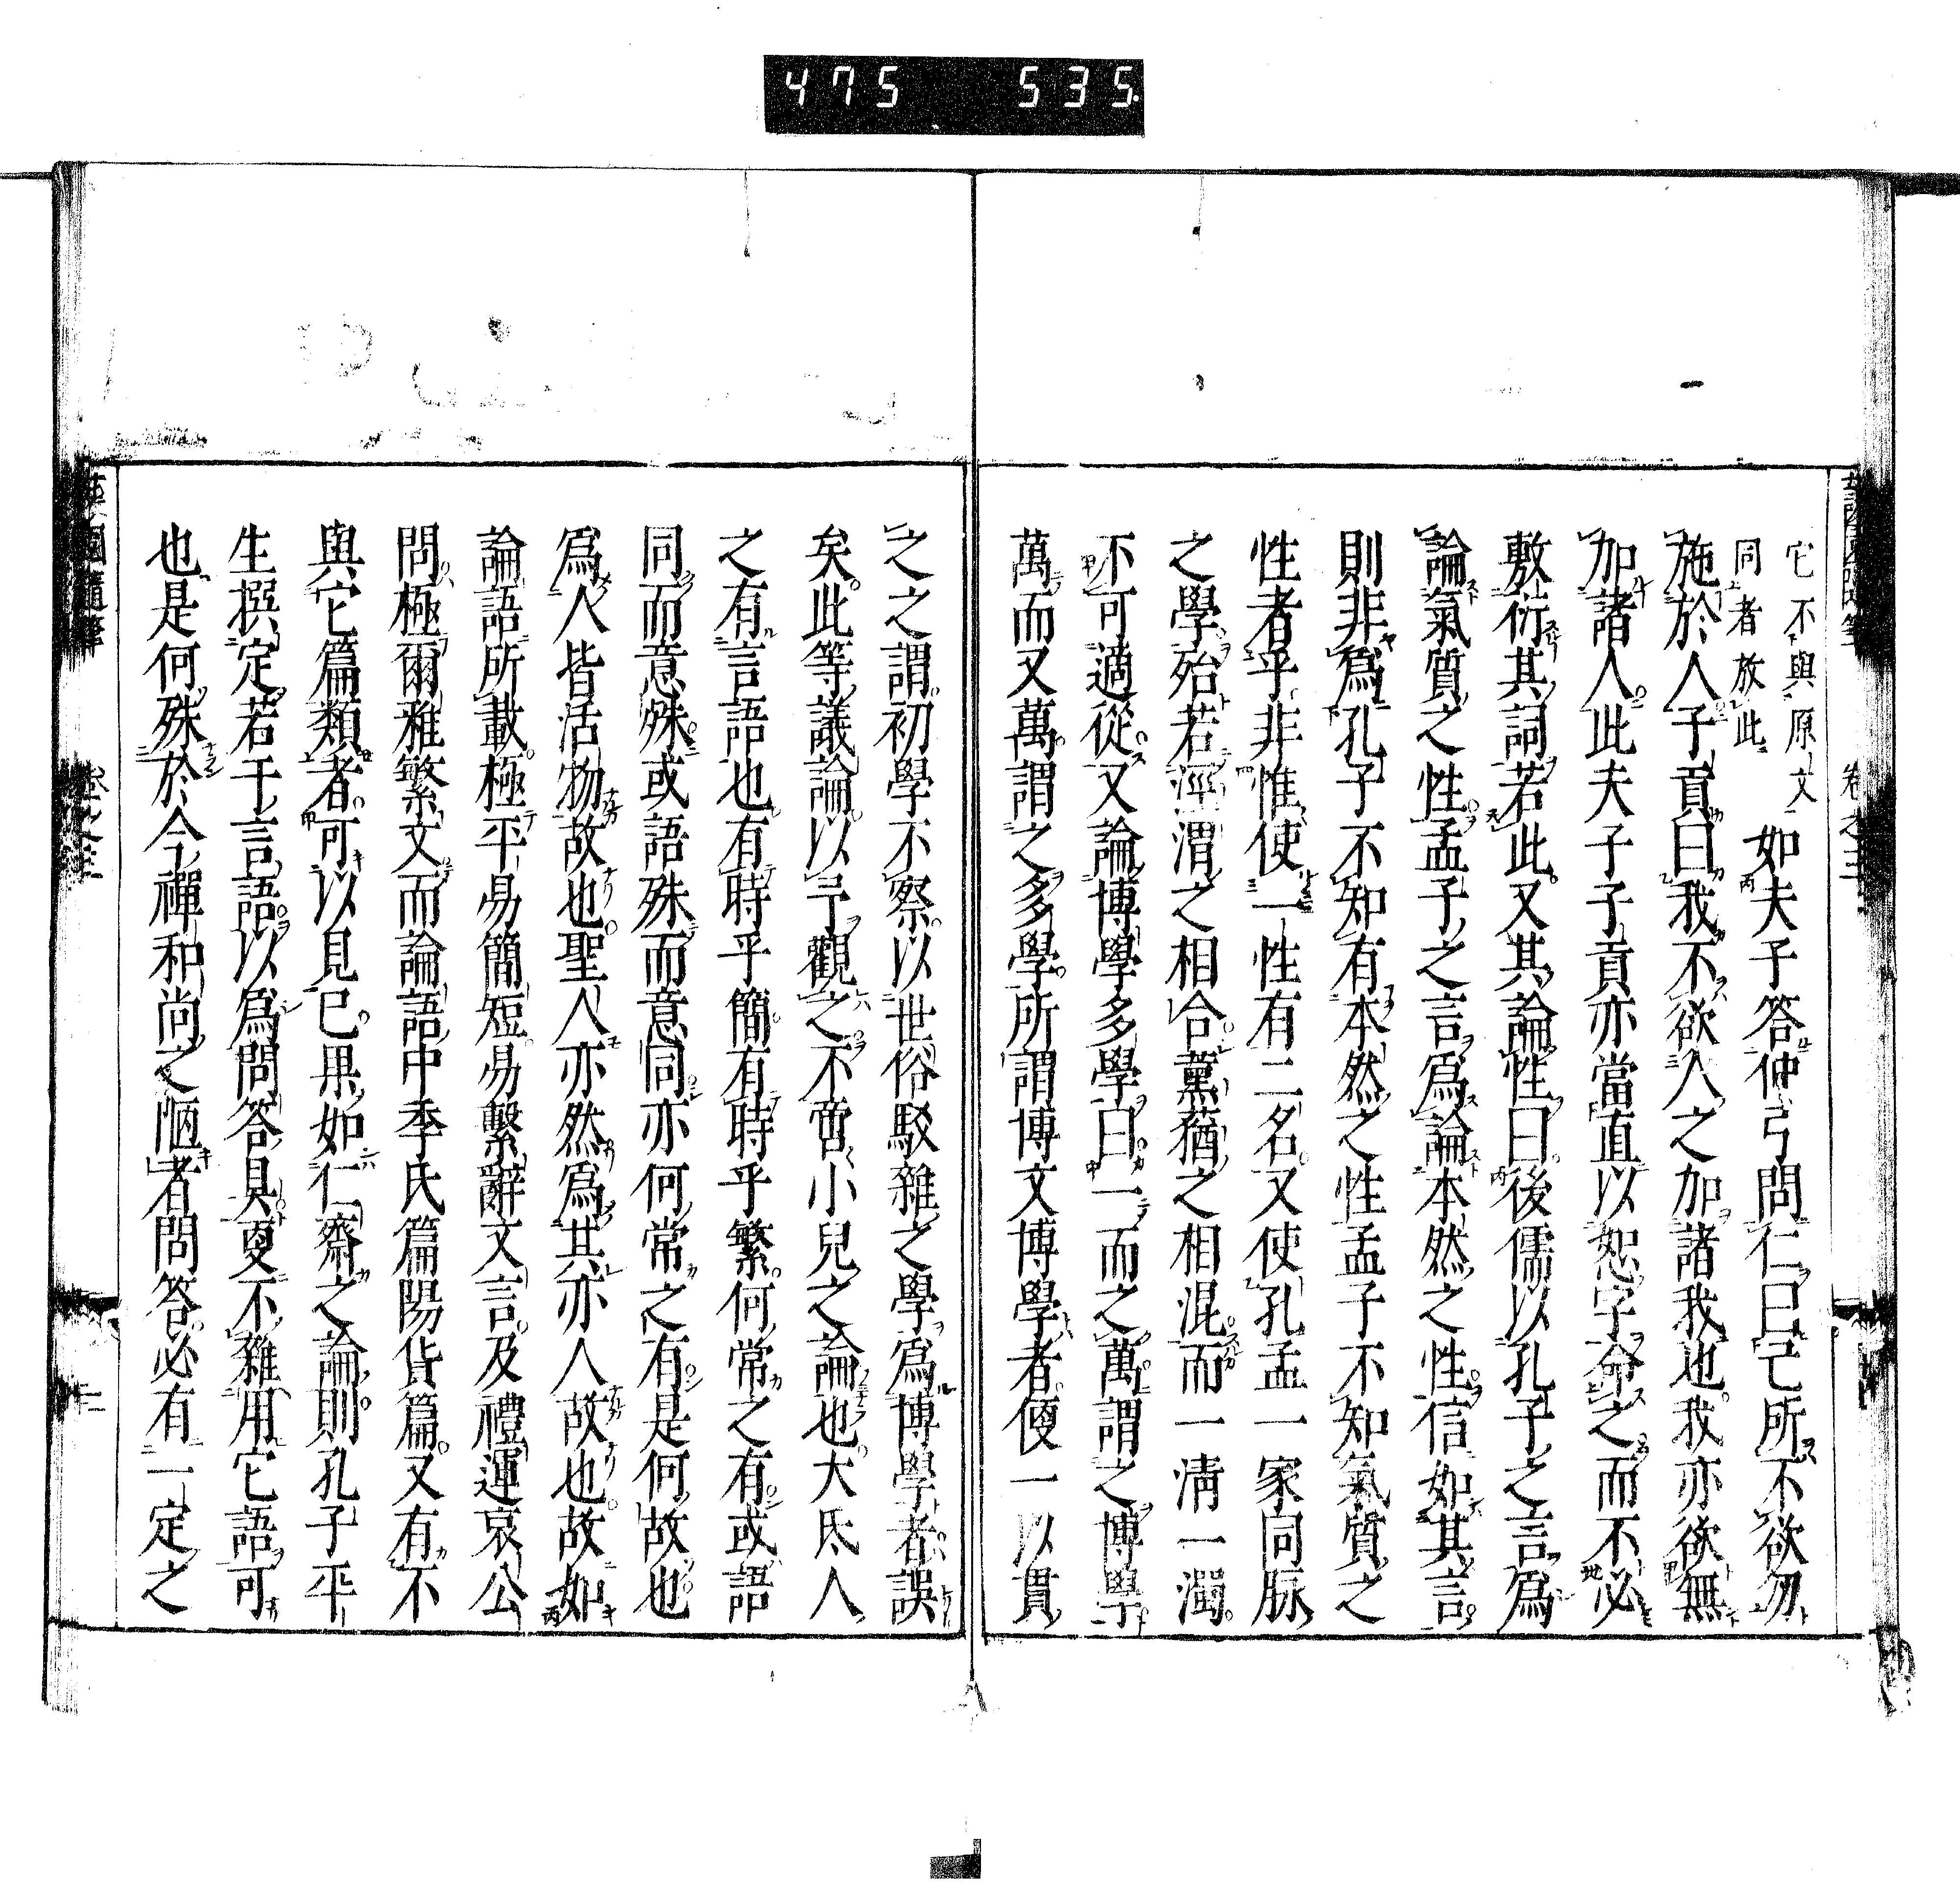 475 535.
它不與原文
同者放此
如夫子答仲弓問仁曰己所不欲勿
施於人子貢曰我不欲人之加諸我也我亦欲無
加諸人此夫子子貢亦當直以恕字命之而不必
敷衍其詞若此又其論性曰後儒以孔子之言爲
論氣質之性孟子之言爲論本然之性信如其言
則非爲孔子不知有本然之性孟子不知氣質之
性者乎非惟使一性有二名又使孔孟一家同脉
之學殆若涇渭之相合薰蕕之相混而一淸一濁
不可適從又論博學多學曰一而之萬謂之博學
萬而又萬謂之多學所謂博文博學者便一以貫
之之謂初學不察以世俗駁雜之學爲博學者誤
矣此等議論以予觀之不啻小兒之論也大氐人
之有言語也有時乎簡有時乎繁何常之有或語
同而意殊或語殊而意同亦何常之有是何故也
爲人皆活物故也聖人亦然爲其亦人故也故如
論語所載極平易簡短易繫辭文言及禮運哀公
問極爾雅繁文而論語中季氏篇陽貨篇又有不
與它篇類者可以見已果如仁齋之論則孔子平
生撰定若干言語以爲問答具更不雜用它語可
也是何殊於今禪和尚之陋者問答必有一定之
園隨筆
卷之三
二